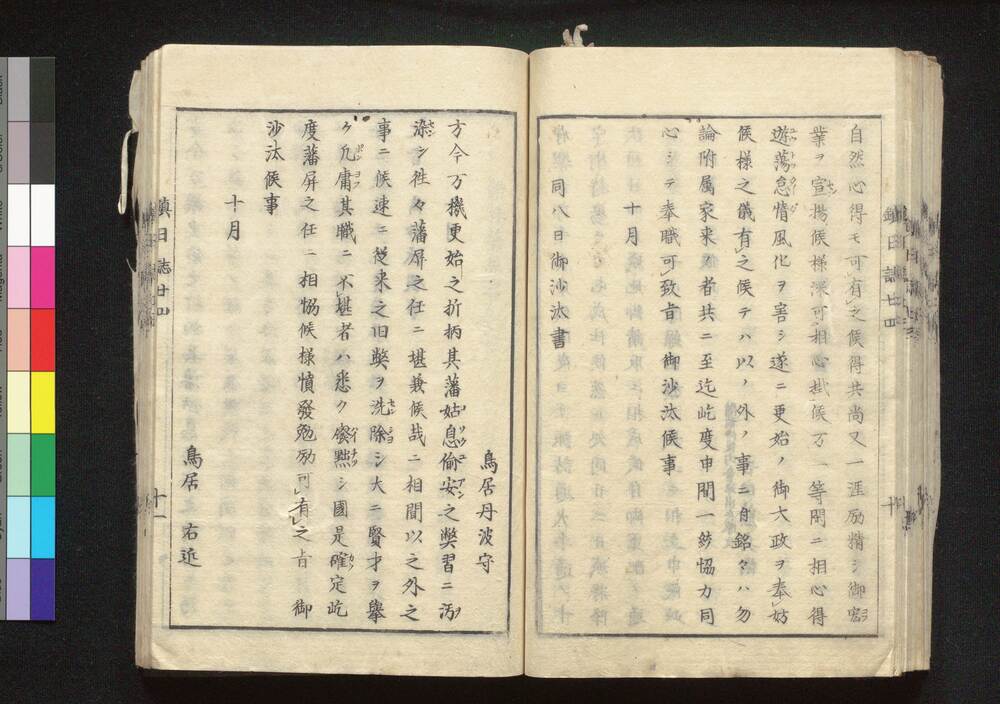 自然心得モ可有之候得共尚又一涯励精シ御宏
業ヲ宣揚候様深可相心掛候万一等閑ニ相心得
遊蕩怠惰風化ヲ害シ遂ニ更始ノ御大政ヲ奉妨
候様之儀有之候テハ以ノ外ノ事ニ付銘々ハ勿
論附属家来ノ者共ニ至迄屹度申聞一致協力同
心シテ奉職可致旨御沙汰候事
十月
同八日御沙汰書
鎮日誌廿四
十
鳥居丹波守
方今万機更始之折柄其藩姑息偷安之弊習ニ汚
染シ徃々藩屏之任ニ堪兼候哉ニ相聞以之外之
事ニ候速ニ従来之旧弊ヲ洗除シ大ニ賢才ヲ挙
ケ凡庸其職ニ不堪者ハ悉ク廃黜シ國是確定屹
度藩屏之任ニ相協候様憤發勉励可有之旨 御
沙汰候事
十月
鳥居右近
鎮日誌廿四
十一